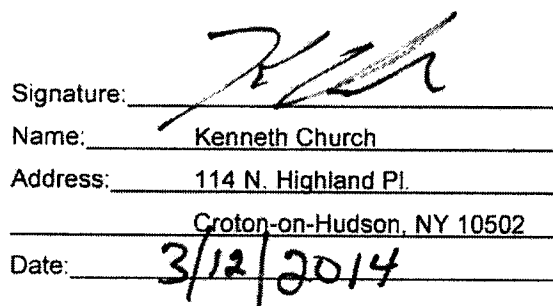 Signature:
Name: Kenneth Church
Address: 114 N. Highland Pl.
Croton-on-Hudson, NY 10502
Date: 3/12/2014